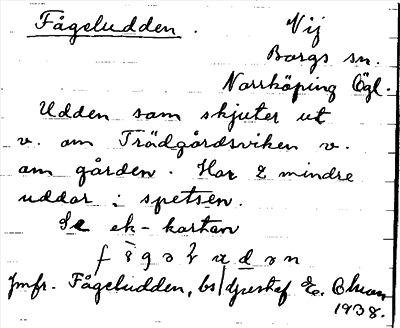 Fågeludden. Vij
Borgs sn.
Norrköping Ögl.
Udden som skjuter ut
v. om Trädgårdsviken v.
om gården. Har 2 mindre
uddar i spetsen.
Se ek-kartan
Jmfr. Fågeludden, bs/Gustaf E.
1938.